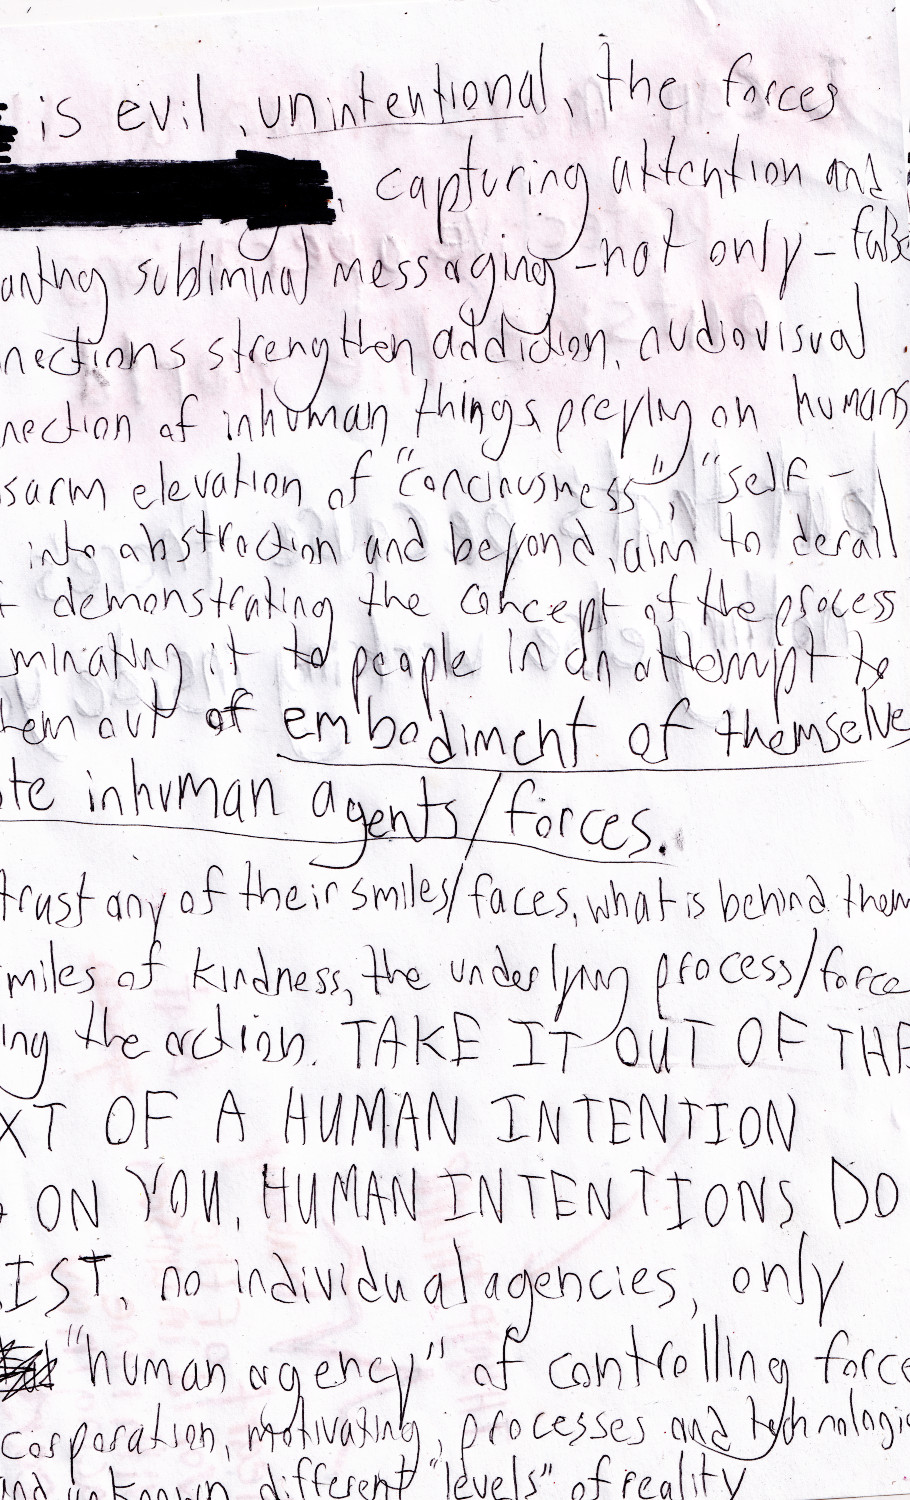 is evil, unintentional, the forces
, capturing attention and
anting subliminal messaging - not only - false
nections strengthen addiction, audiovisual
nection of inhuman things preying on humans
sarm elevation of "conciousness", "self -
into abstraction and beyond, aim to derail
demonstrating the concept of the process
minating it to people in an attempt to
hem out of embodiment of themselve
te inhuman agents/forces.
trust any of their smiles/faces, what is behind them
miles of kindness, the underlying process/force
ing the action. TAKE IT OUT OF THE
XT OF A HUMAN INTENTION
ON YOU, HUMAN INTENTIONS DO
IST, no individual agencies, only
"human agency" of controlling force
corporation, motivating, processes and technologi
and unknown different "levels" of reality